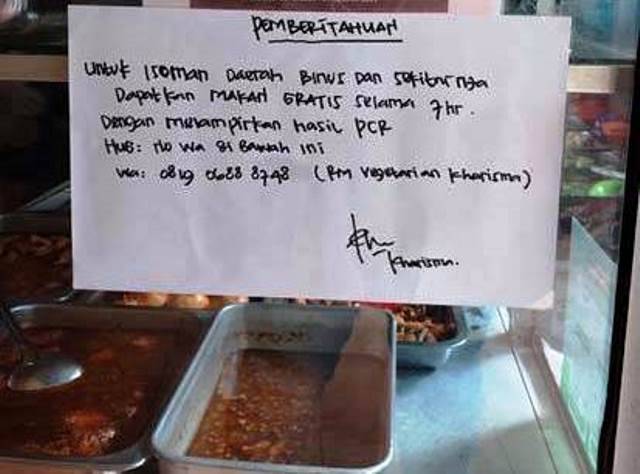 PEMBERITAHUAN
Untuk Isoman Daerah Binus Dan Sekitarnya
Dapatkan MAKAN GRATIS Selama 7 hr.
Dengan melampirkan Hasil PCR
Hub: No Wa di Bawah Ini
Wa: 0819 0688 8798 (RM Vegetarian Kharisma)
Kharisma.